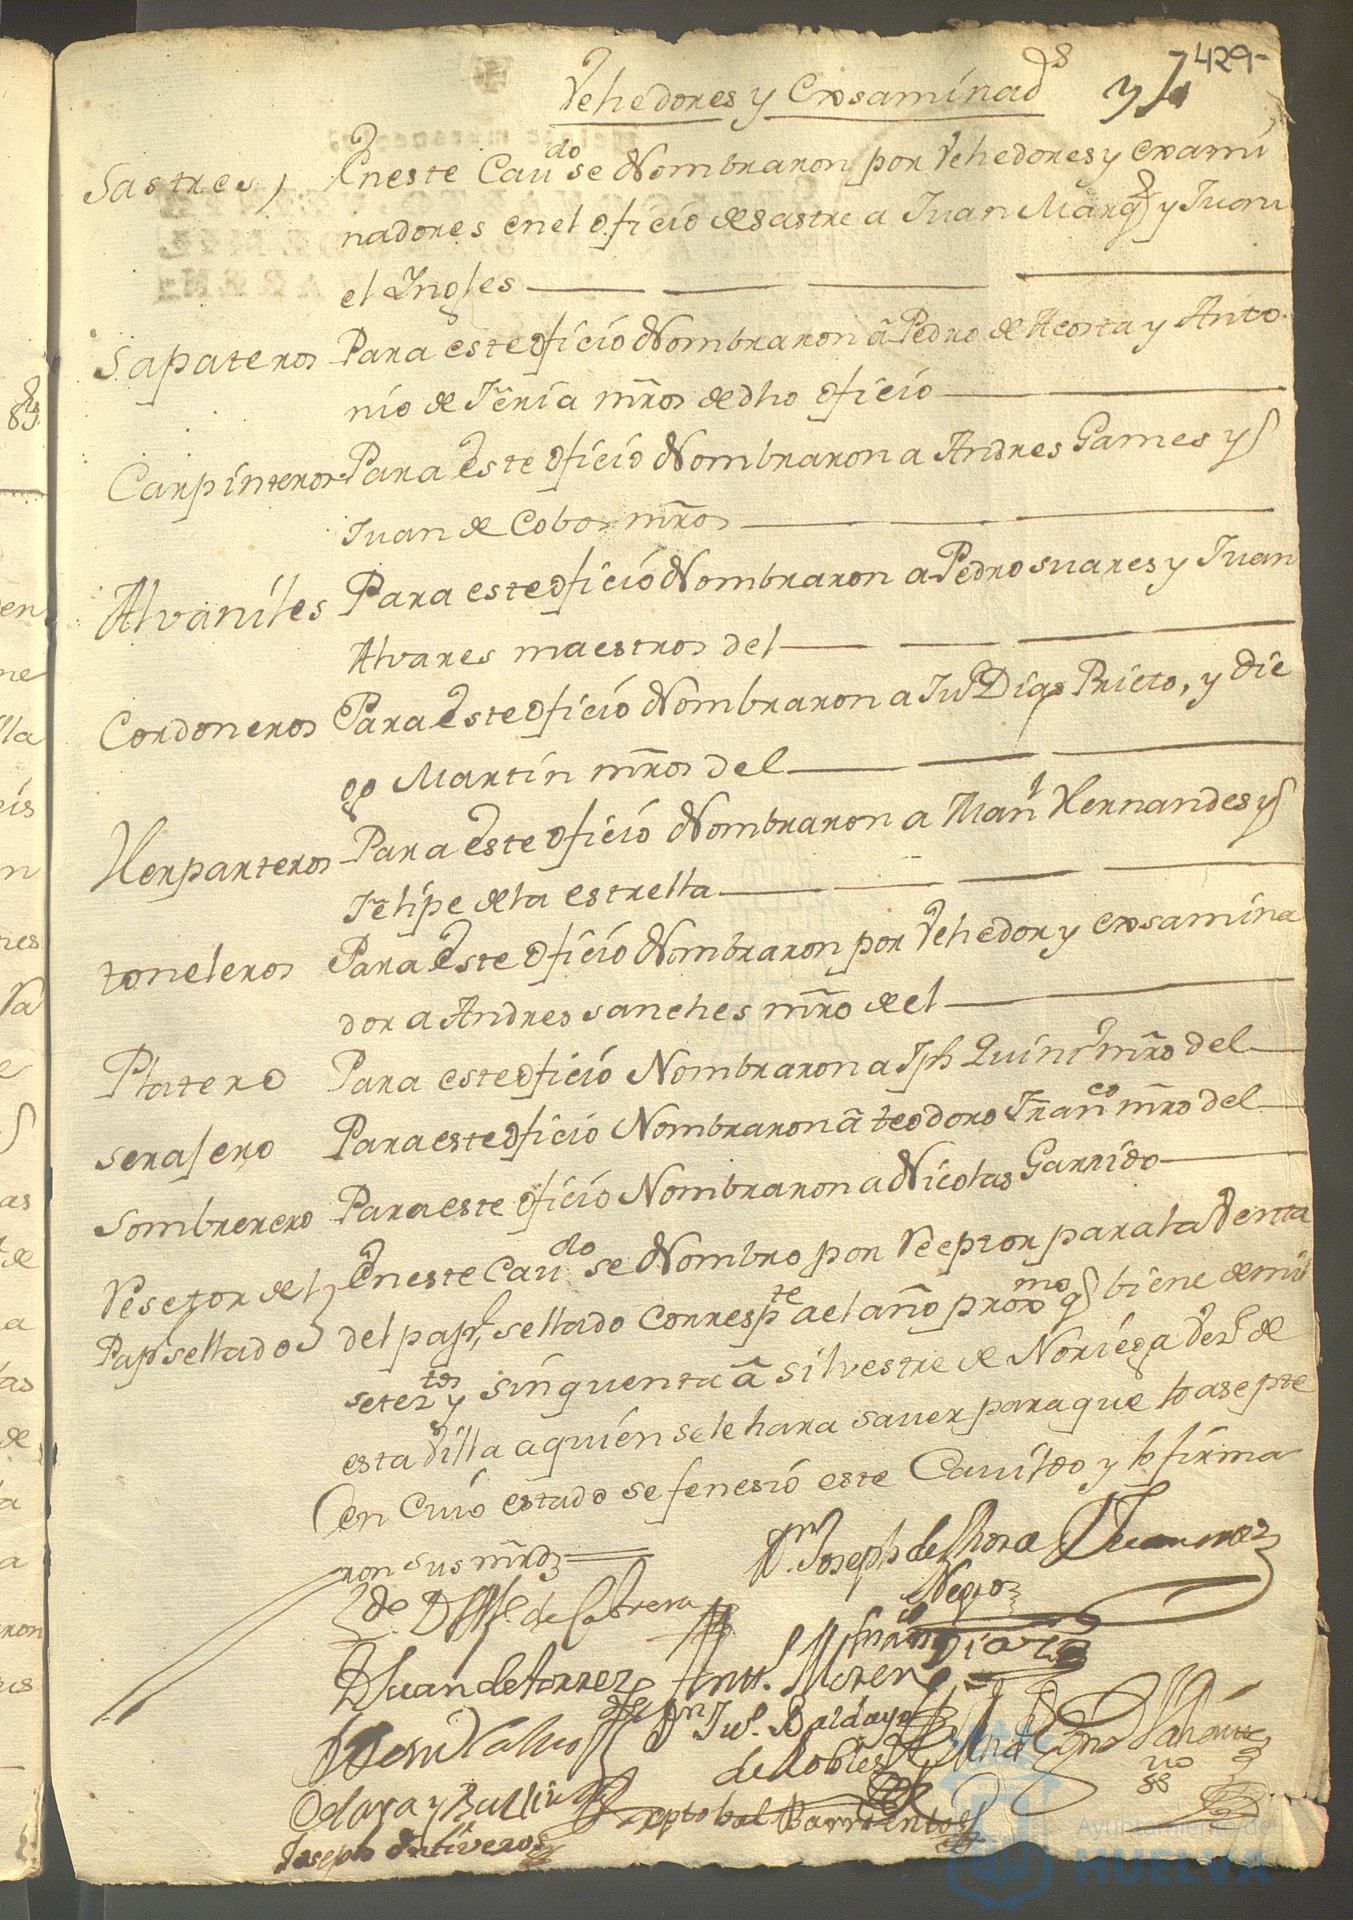 429
Vehedores y Exsaminad.s
Sastres, En este Cau.do se Nombraron por Vehedores y exami
nadores en el oficio de sastre a Juan Marq.z y Juan
el Yngles
Sapateros Para este oficio Nombraron â Pedro de Acosta y Anto
nio de Feria mros de dho oficio
Carpinteros Para Este oficio Nombraron a Andres Games y
Juan de Cobos mros
Alvañiles Para este oficio Nombraron a Pedro suares y Juan
Alvares maestros del
Cordoneros Para Este oficio Nombraron a Ju.o Dias Prieto, y Die
go Martin mros del
Herparteros Para este oficio Nombraron a Man.l Hernandes y
Felipe de la estrella
toneleros Para Este oficio Nombraron por Vehedor y exsamina
dor a Andres sanches mro de el
Platero Para este oficio Nombraron a Jph Quin.o mro del
Serajero Para este oficio Nombraron â teodoro Fran.co mro del
Sombrerero Para este oficio Nombraron a Nicolas Garrido
Resetor del En este Cau.do se Nombro por Reeptor para la Venta
Pap.l sellado del pap.l sellado corresp.te a el año prox.mo q biene de mil
setez.tos y sinquenta â silvestre de Noriega Vez.o de
esta Villa a quien se le hara saver para que lo asepte
en cuio estado se fenesio este Cavildo y lo firma
ron sus mrds
D.n Joseph de la Rosa
Negro
L.do D. de Cabrera
Fran.co Diaz
D Juan de torres
Ant.o Moreno
D.n Ju.o Baldayo
de Robles
Xptobal Barrientos
Joseph Ontiveros
Ayuntamiento de
HUELVA